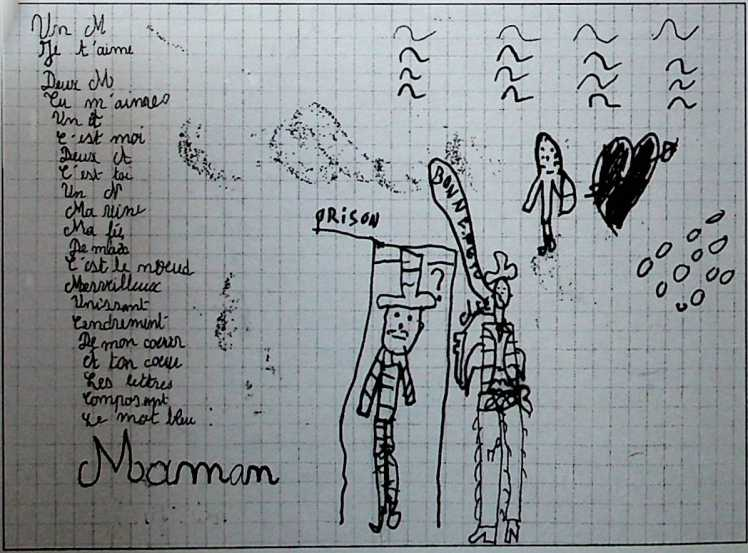 Un M
Je t'aime
Deux M
Tu m'aimes
Un A
C'est moi
Deux A
C'est toi
Un N
Ma reine
Ma fée
De mots
C'est le nœud
Merveilleux
Unissant
Tendrement
De mon cœur
A ton cœur
Les lettres
Composent
Le mot bleu
Maman
PRISON
?